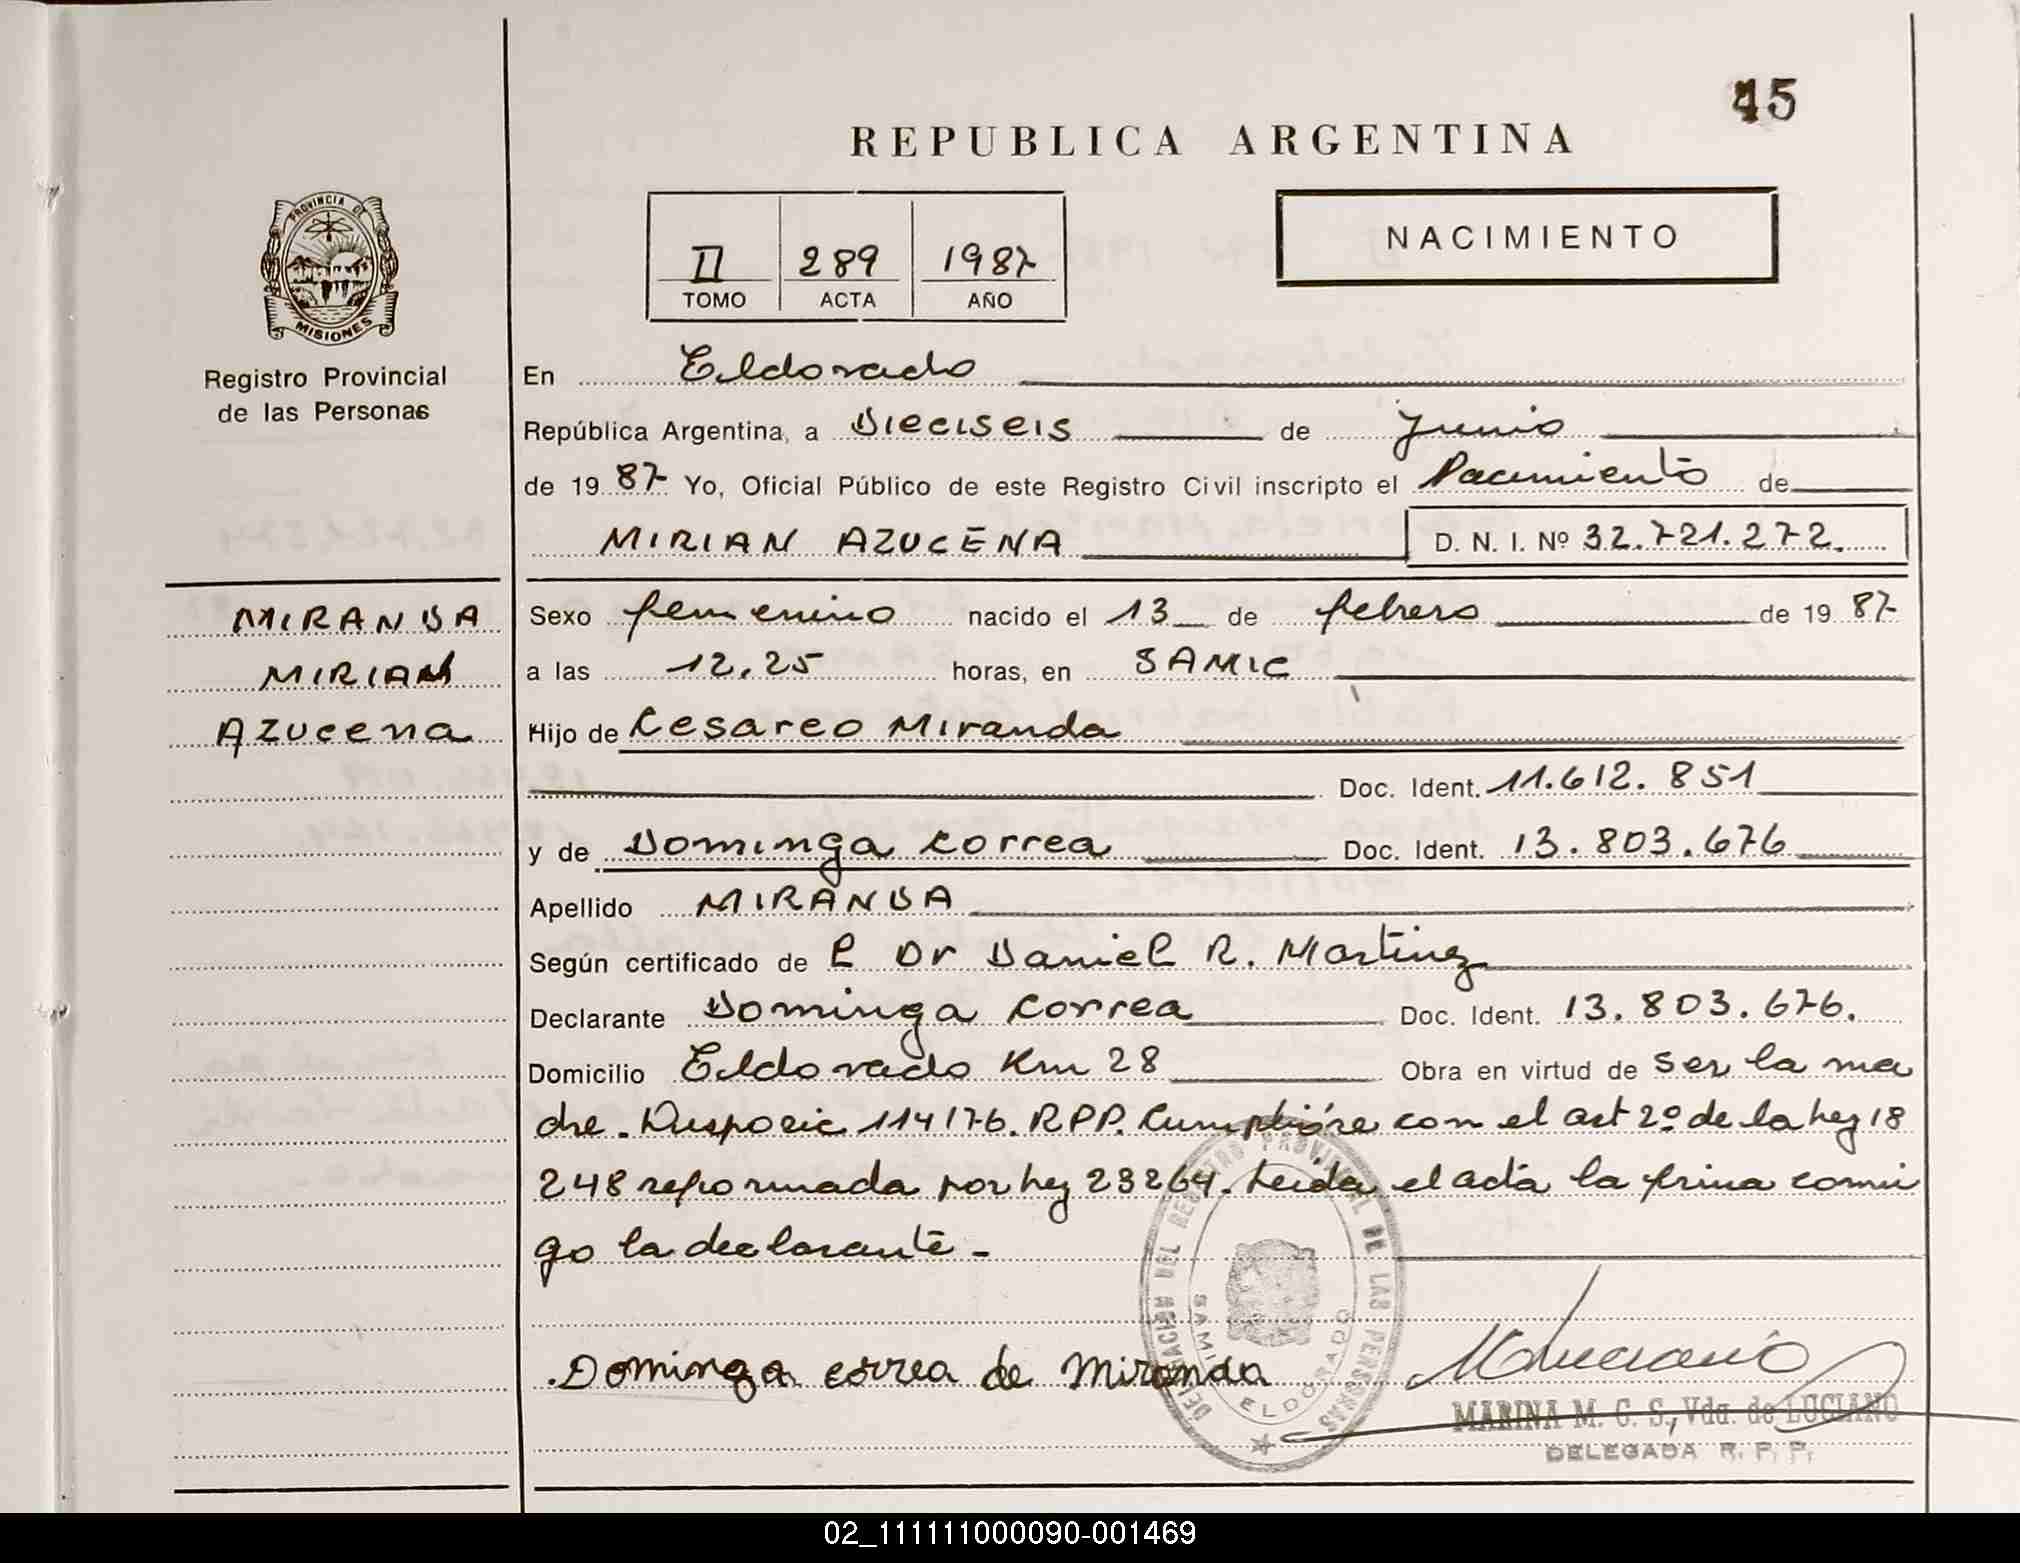 45
REPUBLICA ARGENTINA
PROVINCIA DE
MISIONES
Registro Provincial
de las Personas
II 289 1987
TOMO ACTA AÑO
NACIMIENTO
En Eldorado
República Argentina, a Dieciseis de Junio
de 1987 Yo, Oficial Público de este Registro Civil inscripto el Nacimiento de
MIRIAN AZUCENA D. N. I. Nº 32.721.272.
MIRANDA
MIRIAN
Azucena
Sexo femenino nacido el 13 de febrero de 1987
a las 12,25 horas, en SAMIC
Hijo de Cesareo Miranda
Doc. Ident. 11.612.851
y de Dominga Correa Doc. Ident. 13.803.676
Apellido MIRANDA
Según certificado de l Dr Daniel R. Martinez
Declarante Dominga Correa Doc. Ident. 13.803.676.
Domicilio Eldorado Km 28 Obra en virtud de ser la ma
dre. Disposic 114176. RPP. Cumplióse con el art 2º de la ley 18
248 reformada por ley 23264. Leida el acta la firma conmi
go la declarante.-
Dominga correa de Miranda
DELEGACION DEL REGISTRO PROVINCIAL DE LAS PERSONAS
SAMIC ELDORADO
MARINA M. C. S., Vda. de LUCIANO
DELEGADA R. P. P.
02_111111000090-001469